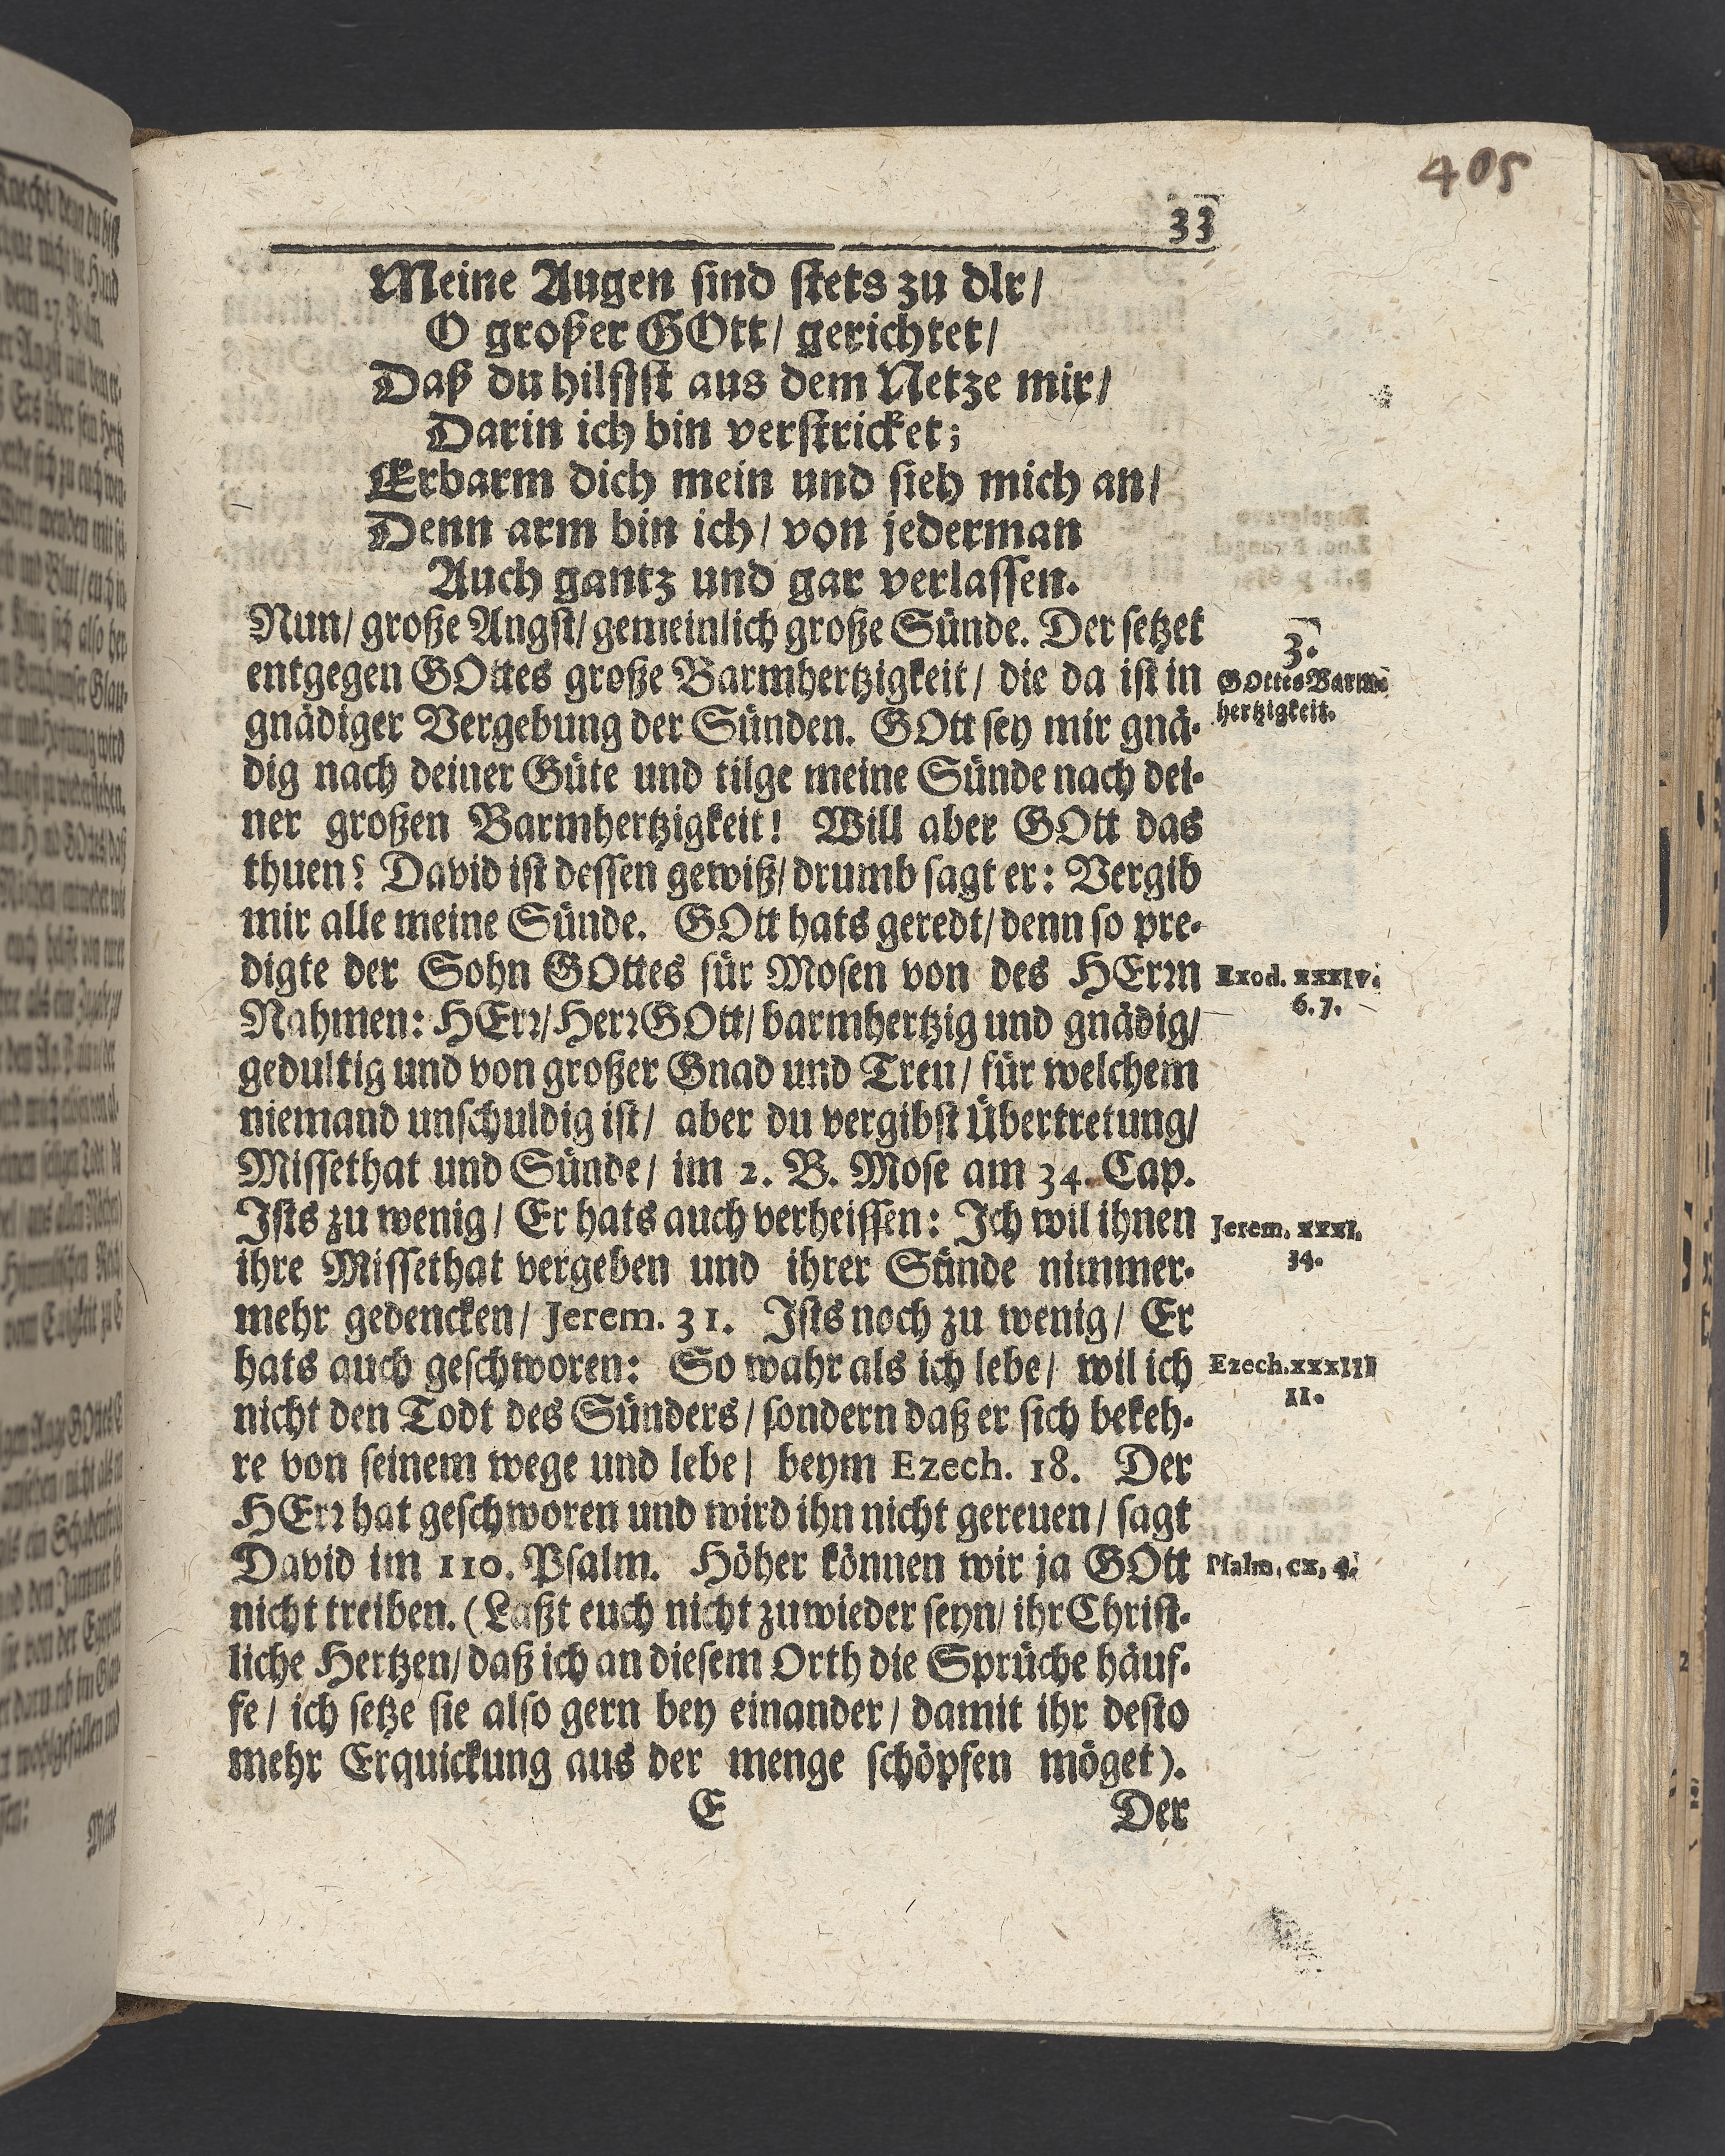 405
33
Meine Augen ſind ſtets zu dIr/
O großer GOtt/ gerichtet/
Daß du hilffſt aus dem Netze mir/
Darin ich bin verſtricket;
Erbarm dich mein und ſieh mich an/
Denn arm bin ich/ von jederman
Auch gantz und gar verlaſſen.
Nun/ große Angſt/ gemeinlich große Sünde. Der ſetzet
entgegen GOttes große Barmhertzigkeit/ die da iſt in
gnädiger Vergebung der Sünden. GOtt ſey mir gnä-
dig nach deiner Güte und tilge meine Sünde nach dei-
ner großen Barmhertzigkeit! Will aber GOtt das
thuen? David iſt deſſen gewiß/ drumb ſagt er: Vergib
mir alle meine Sünde. GOtt hats geredt/ denn ſo pre-
digte der Sohn GOttes für Moſen von des HErꝛn
Nahmen: HErꝛ/ HerꝛGOtt/ barmhertzig und gnädig/
gedultig und von großer Gnad und Treu/ für welchem
niemand unſchuldig iſt/ aber du vergibſt Übertretung/
Miſſethat und Sünde/ im 2. B. Moſe am 34. Cap.
Iſts zu wenig/ Er hats auch verheiſſen: Ich wil ihnen
ihre Miſſethat vergeben und ihrer Sünde nimmer-
mehr gedencken/ Jerem. 31. Iſts noch zu wenig/ Er
hats auch geſchworen: So wahr als ich lebe/ wil ich
nicht den Todt des Sünders/ ſondern daß er ſich bekeh-
re von ſeinem wege und lebe/ beym Ezech. 18. Der
HErꝛ hat geſchworen und wird ihn nicht gereuen/ ſagt
David im 110. Pſalm. Höher können wir ja GOtt
nicht treiben. (Laßt euch nicht zuwieder ſeyn/ ihr Chriſt-
liche Hertzen/ daß ich an dieſem Orth die Sprüche häuf-
fe/ ich ſetze ſie alſo gern bey einander/ damit ihr deſto
mehr Erquickung aus der menge ſchöpfen möget).
E Der
3.
GOttes Barm-
hertzigkeit.
Exod. xxxIv.
6. 7.
Jerem. xxxI.
34.
Ezech. xxxIII
11.
Pſalm. cx, 4.